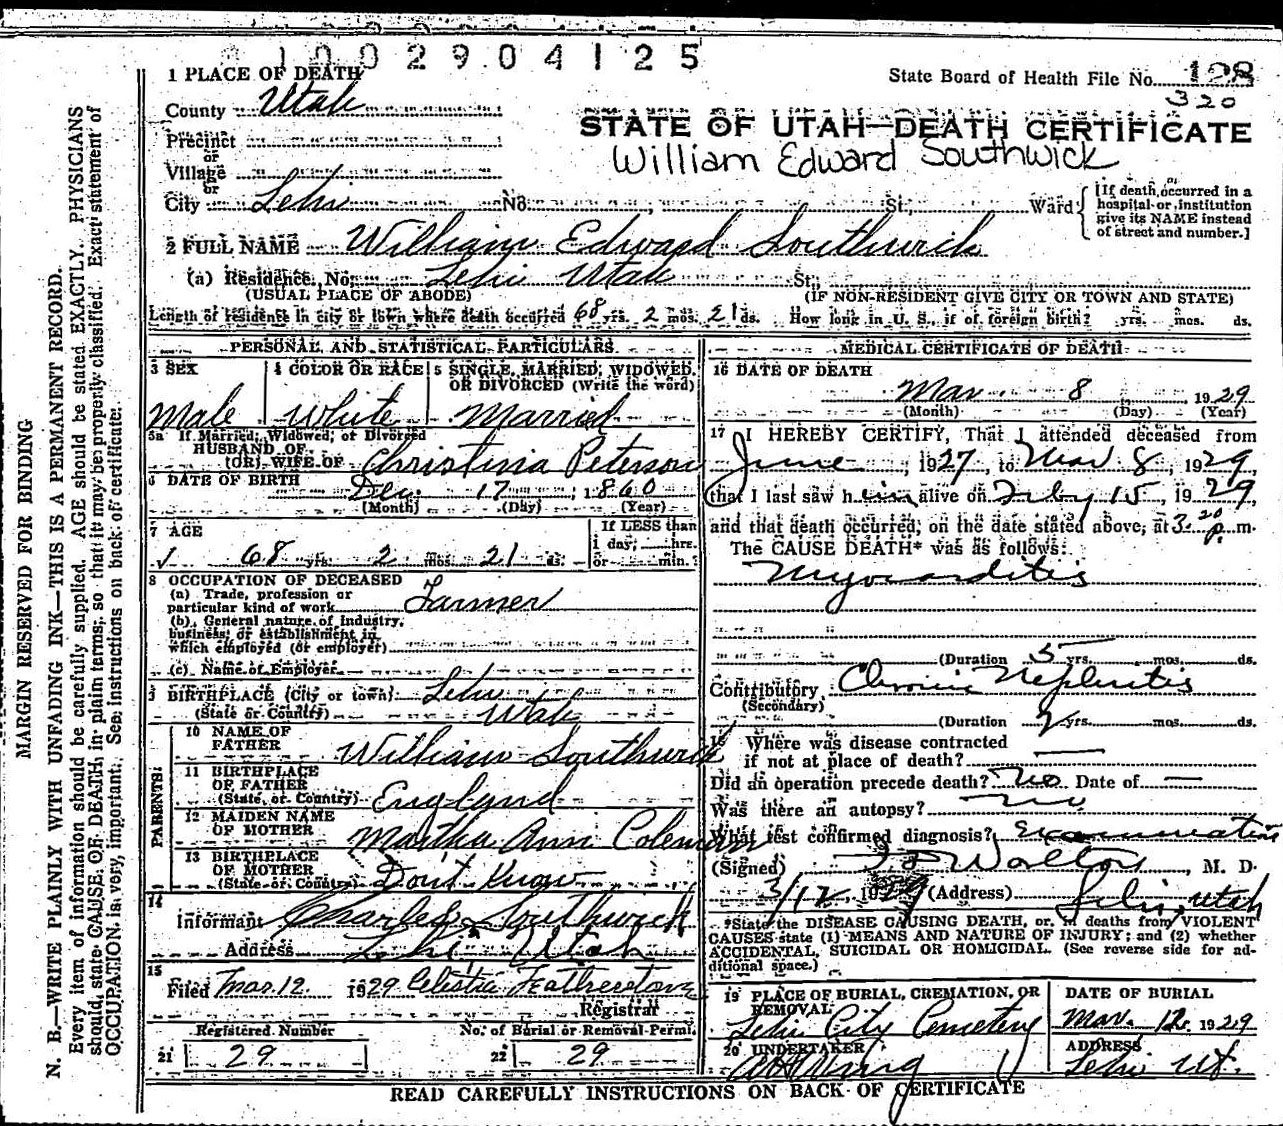 1 0 0 2 9 0 4 1 2 5
1 PLACE OF DEATH
State Board of Health File No. 128
320
County Utah
STATE OF UTAH—DEATH CERTIFICATE
Precinct
or
William Edward Southwick
Village
or
City Lehi No. St., Ward
[If death occurred in a
hospital or institution
give its NAME instead
of street and number.]
2 FULL NAME William Edward Southwick
(a) Residence, No. Lehi Utah St.,
(USUAL PLACE OF ABODE) (IF NON-RESIDENT GIVE CITY OR TOWN AND STATE)
Length of residence in city or town where death occurred 68 yrs. 2 mos. 21 ds. How long in U. S., if of foreign birth? yrs. mos. ds.
PERSONAL AND STATISTICAL PARTICULARS
3 SEX 4 COLOR OR RACE 5 SINGLE, MARRIED, WIDOWED,
OR DIVORCED (Write the word)
Male White Married
5a If Married, Widowed, or Divorced
HUSBAND OF
(OR) WIFE OF Christina Peterson
6 DATE OF BIRTH Dec. 17 1860
(Month) (Day) (Year)
7 AGE If LESS than
1 day, hrs.
68 yrs. 2 mos. 21 ds. or min.?
8 OCCUPATION OF DECEASED
(a) Trade, profession or
particular kind of work Farmer
(b) General nature of industry,
business, or establishment in
which employed (or employer)
(c) Name of Employer
9 BIRTHPLACE (City or town) Lehi
(State or Country) Utah
PARENTS
10 NAME OF
FATHER William Southwick
11 BIRTHPLACE
OF FATHER
(State or Country) England
12 MAIDEN NAME
OF MOTHER Martha Ann Coleman
13 BIRTHPLACE
OF MOTHER
(State or Country) Don't Know
14
Informant Charles Southwick
Address Lehi Utah
15
Filed Mar. 12. 1929 Celestia Featherstone
Registrar
Registered Number No. of Burial or Removal Permit
21 29 22 29
MEDICAL CERTIFICATE OF DEATH
16 DATE OF DEATH
Mar 8 1929
(Month) (Day) (Year)
17 I HEREBY CERTIFY, That I attended deceased from
June, 1927, to Mar 8, 1929,
that I last saw him alive on Feby 15, 1929,
and that death occurred, on the date stated above, at 3 20 p. m.
The CAUSE DEATH* was as follows:
Myocarditis
(Duration 5 yrs. mos. ds.
Contributory Chronic Nephritis
(Secondary)
(Duration 2 yrs. mos. ds.
18 Where was disease contracted
if not at place of death?
Did an operation precede death? No Date of
Was there an autopsy? No
What test confirmed diagnosis? Examination
(Signed) Walton, M. D.
3/12, 1929 (Address) Lehi, Utah
*State the DISEASE CAUSING DEATH, or, in deaths from VIOLENT
CAUSES state (1) MEANS AND NATURE OF INJURY; and (2) whether
ACCIDENTAL, SUICIDAL OR HOMICIDAL. (See reverse side for ad-
ditional space.)
19 PLACE OF BURIAL, CREMATION, OR DATE OF BURIAL
REMOVAL
Lehi City Cemetery Mar. 12 1929
20 UNDERTAKER ADDRESS
Lehi Ut.
READ CAREFULLY INSTRUCTIONS ON BACK OF CERTIFICATE
MARGIN RESERVED FOR BINDING
N. B.—WRITE PLAINLY WITH UNFADING INK—THIS IS A PERMANENT RECORD.
Every item of information should be carefully supplied. AGE should be stated EXACTLY. PHYSICIANS
should state CAUSE OF DEATH in plain terms, so that it may be properly classified. Exact statement of
OCCUPATION is very important. See instructions on back of certificate.